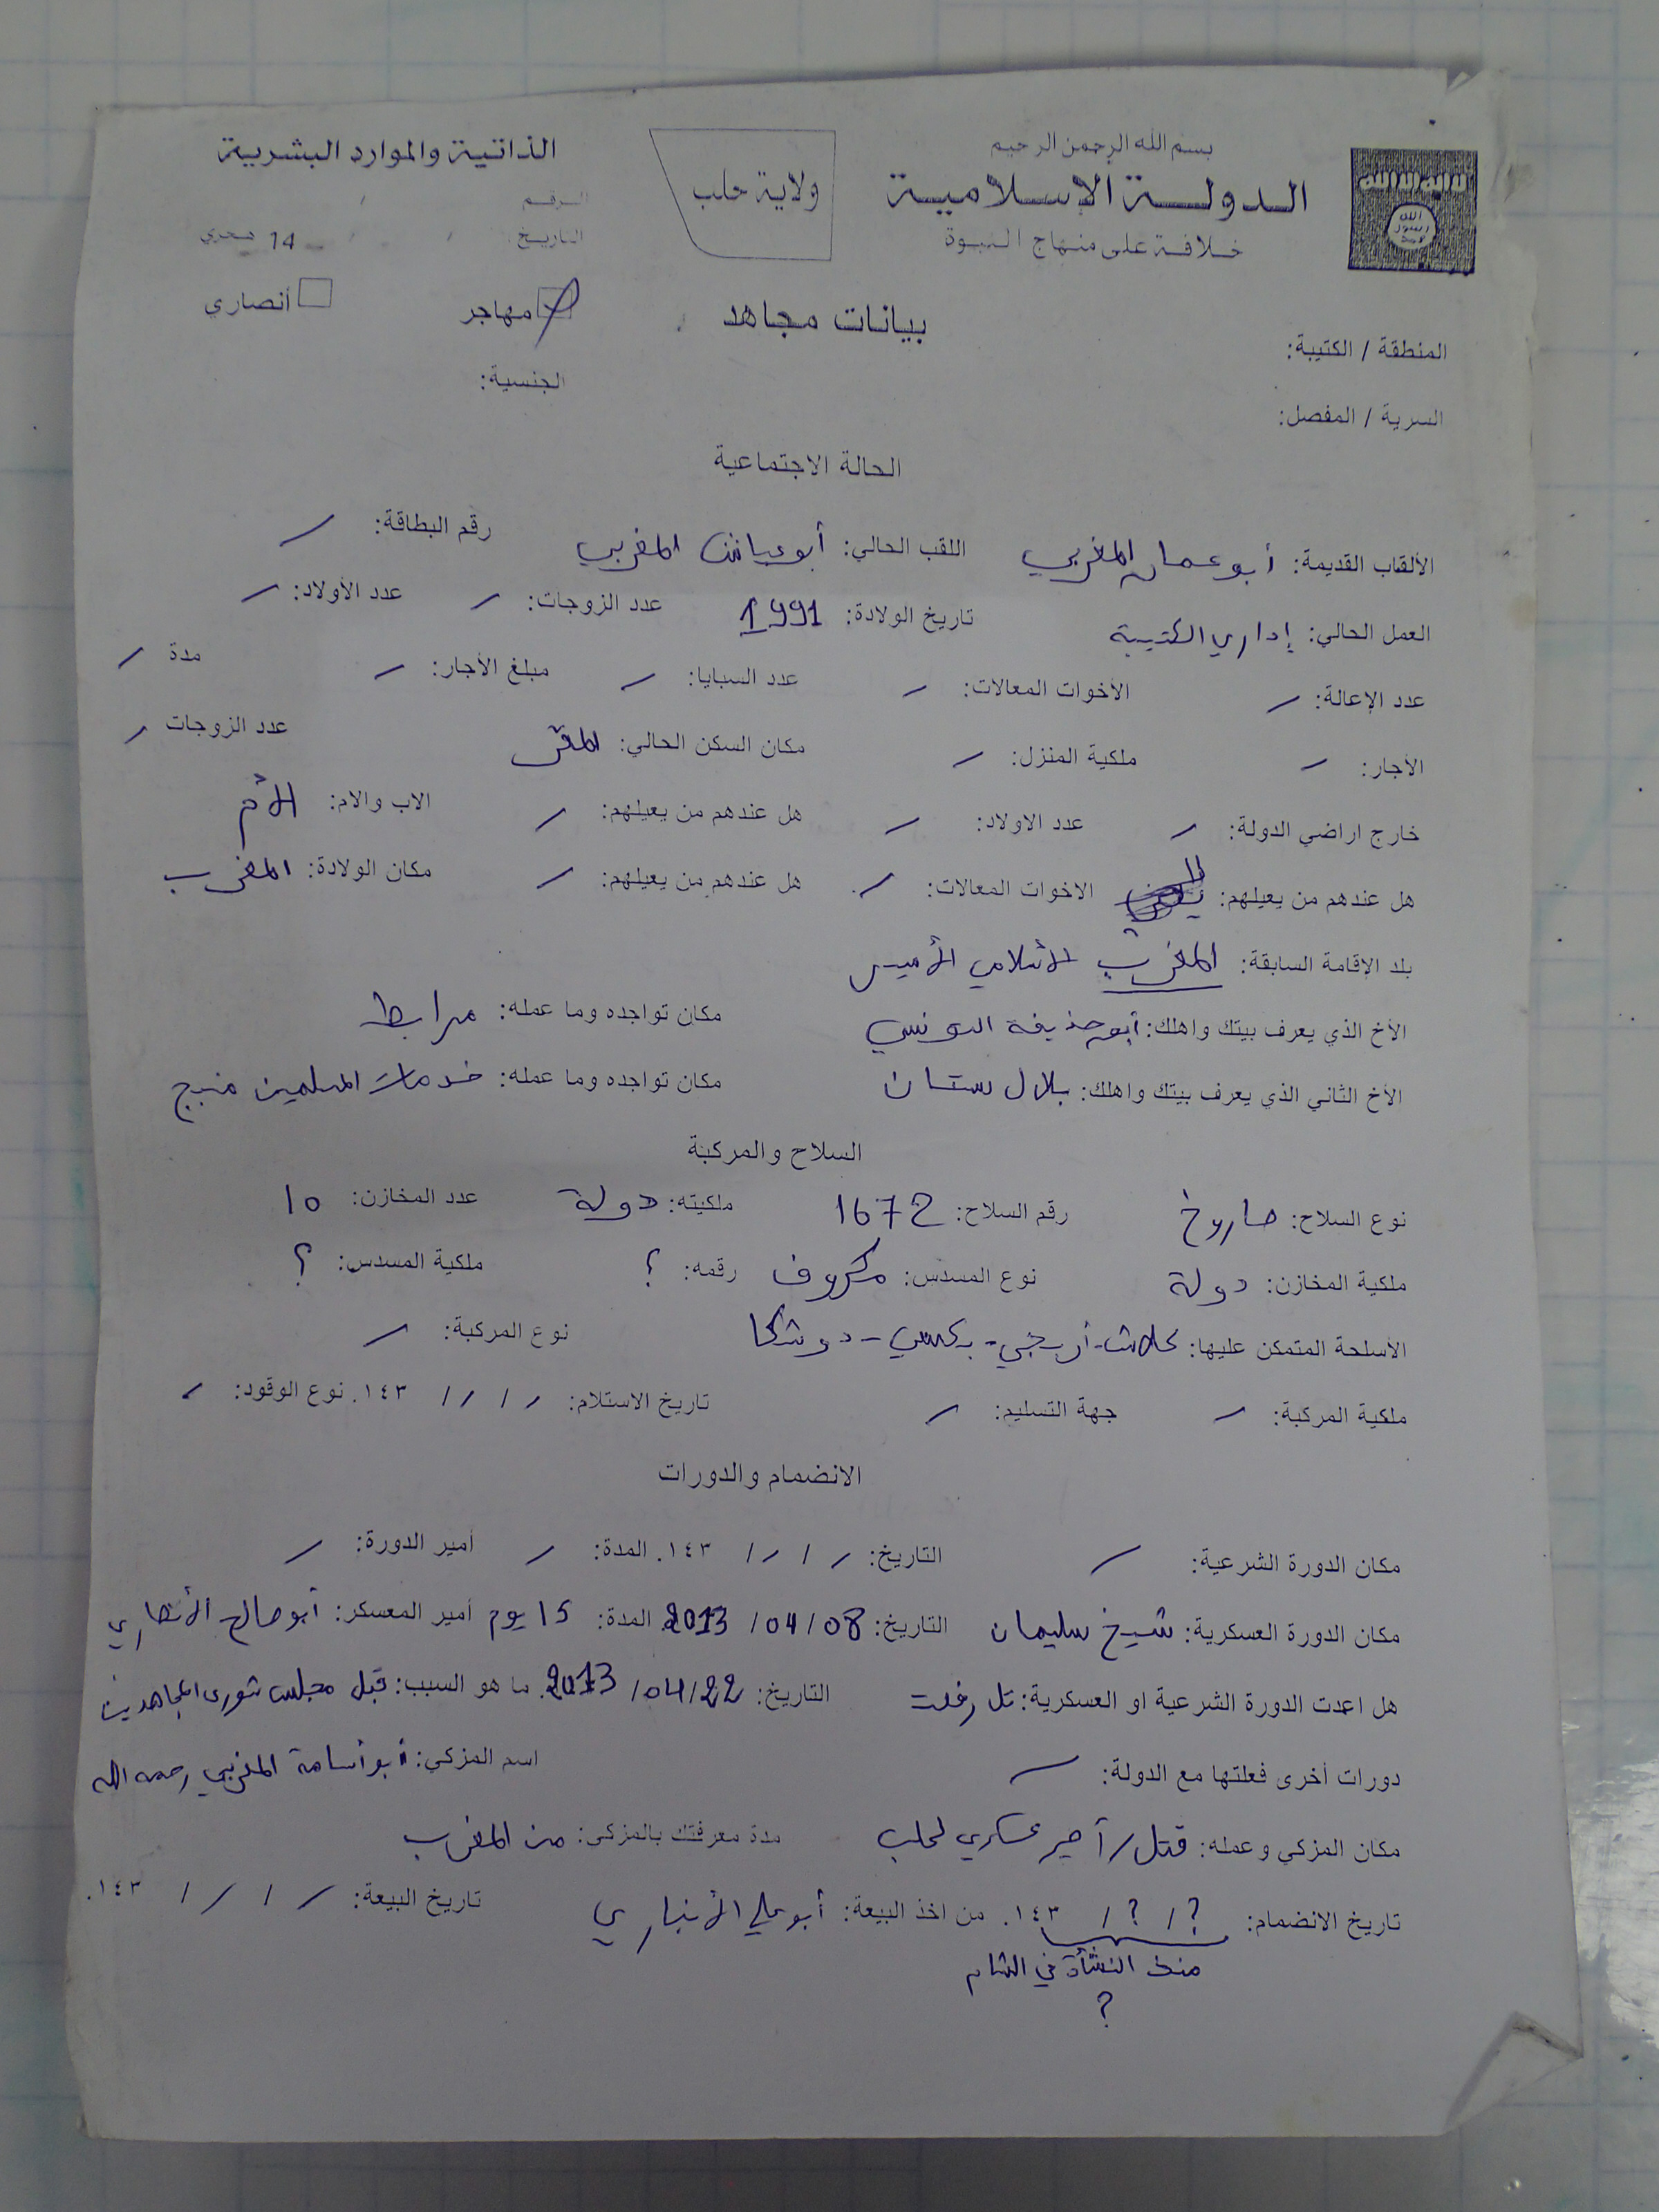 بسم الله الرحمن الرحيم
الدولة الإسلامية
خلافة على منهاج النبوة
ولاية حلب
الذاتية والموارد البشرية
الرقم
التاريخ / / 14 هجري
مهاجر أنصاري
بيانات مجاهد
المنطقة / الكتيبة:
الجنسية:
السرية / المفصل:
الحالة الاجتماعية
الألقاب القديمة: أبو عمار المغربي اللقب الحالي: أبو عياش المغربي رقم البطاقة: /
العمل الحالي: إداري الكتيبة تاريخ الولادة: 1991 عدد الزوجات: / عدد الأولاد: /
عدد الإعالة: / الأخوات المعالات: / عدد السبايا: / مبلغ الأجار: / مدة /
الأجار: / ملكية المنزل: / مكان السكن الحالي: المقر عدد الزوجات /
خارج اراضي الدولة: / عدد الاولاد: / هل عندهم من يعيلهم: / الاب والام: الأم
هل عندهم من يعيلهم: الاخوات المعالات: / هل عندهم من يعيلهم: / مكان الولادة: المغرب
بلد الإقامة السابقة: المغرب
الأخ الذي يعرف بيتك واهلك: أبو حذيفة التونسي مكان تواجده وما عمله: مرابط
الأخ الثاني الذي يعرف بيتك واهلك: بلال ستان مكان تواجده وما عمله: خدمات المسلمين منبج
السلاح والمركبة
نوع السلاح: صاروخ رقم السلاح: 1672 ملكيته: دولة عدد المخازن: 10
ملكية المخازن: دولة نوع المسدس: مكروف رقمه: ؟ ملكية المسدس: ؟
الأسلحة المتمكن عليها: كلاش - أربجي - بكسي - دوشكا نوع المركبة: /
ملكية المركبة: / جهة التسليم: / تاريخ الاستلام: / / / / ١٤٣. نوع الوقود: /
الانضمام والدورات
مكان الدورة الشرعية: / التاريخ: / / / / ١٤٣. المدة: / أمير الدورة: /
مكان الدورة العسكرية: شيخ سليمان التاريخ: 08 / 04 / 2013 المدة: 15 يوم أمير المعسكر: أبو صالح الأنصاري
هل اعدت الدورة الشرعية او العسكرية: تل رفعت التاريخ: 22 / 04 / 2013. ما هو السبب: قبل مجلس شورى المجاهدين
دورات أخرى فعلتها مع الدولة: / اسم المزكي: أبو أسامة المغربي رحمه الله
مكان المزكي وعمله: قتل / أمير عسكري لحلب مدة معرفتك بالمزكي: من المغرب
تاريخ الانضمام: ? / ? / ١٤٣. من اخذ البيعة: أبو علي الأنباري تاريخ البيعة: / / / / ١٤٣.
منذ النشأة في الشام
?